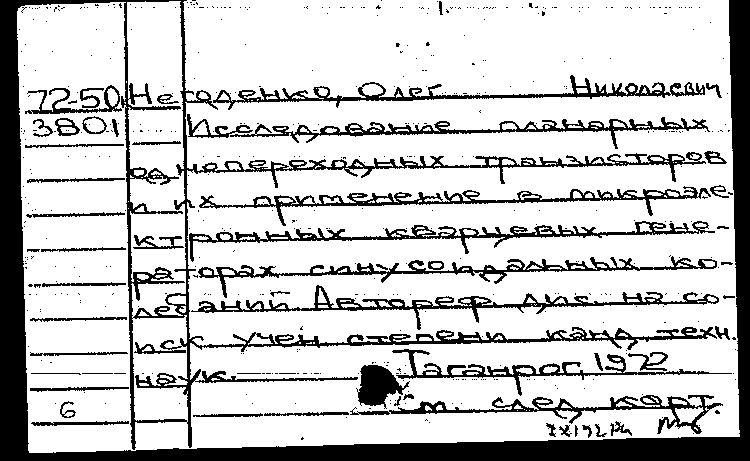 72-50 Негоденко, Олег Николаевич
3801 Исследование планарных
однопереходных транзисторов
и их применение в микроэле-
ктронных кварцевых гене-
раторах синусоидальных ко-
лебаний Автореф дис. на со-
иск. учен степени канд техн.
наук. Таганрог, 1972
6 См. след карт.